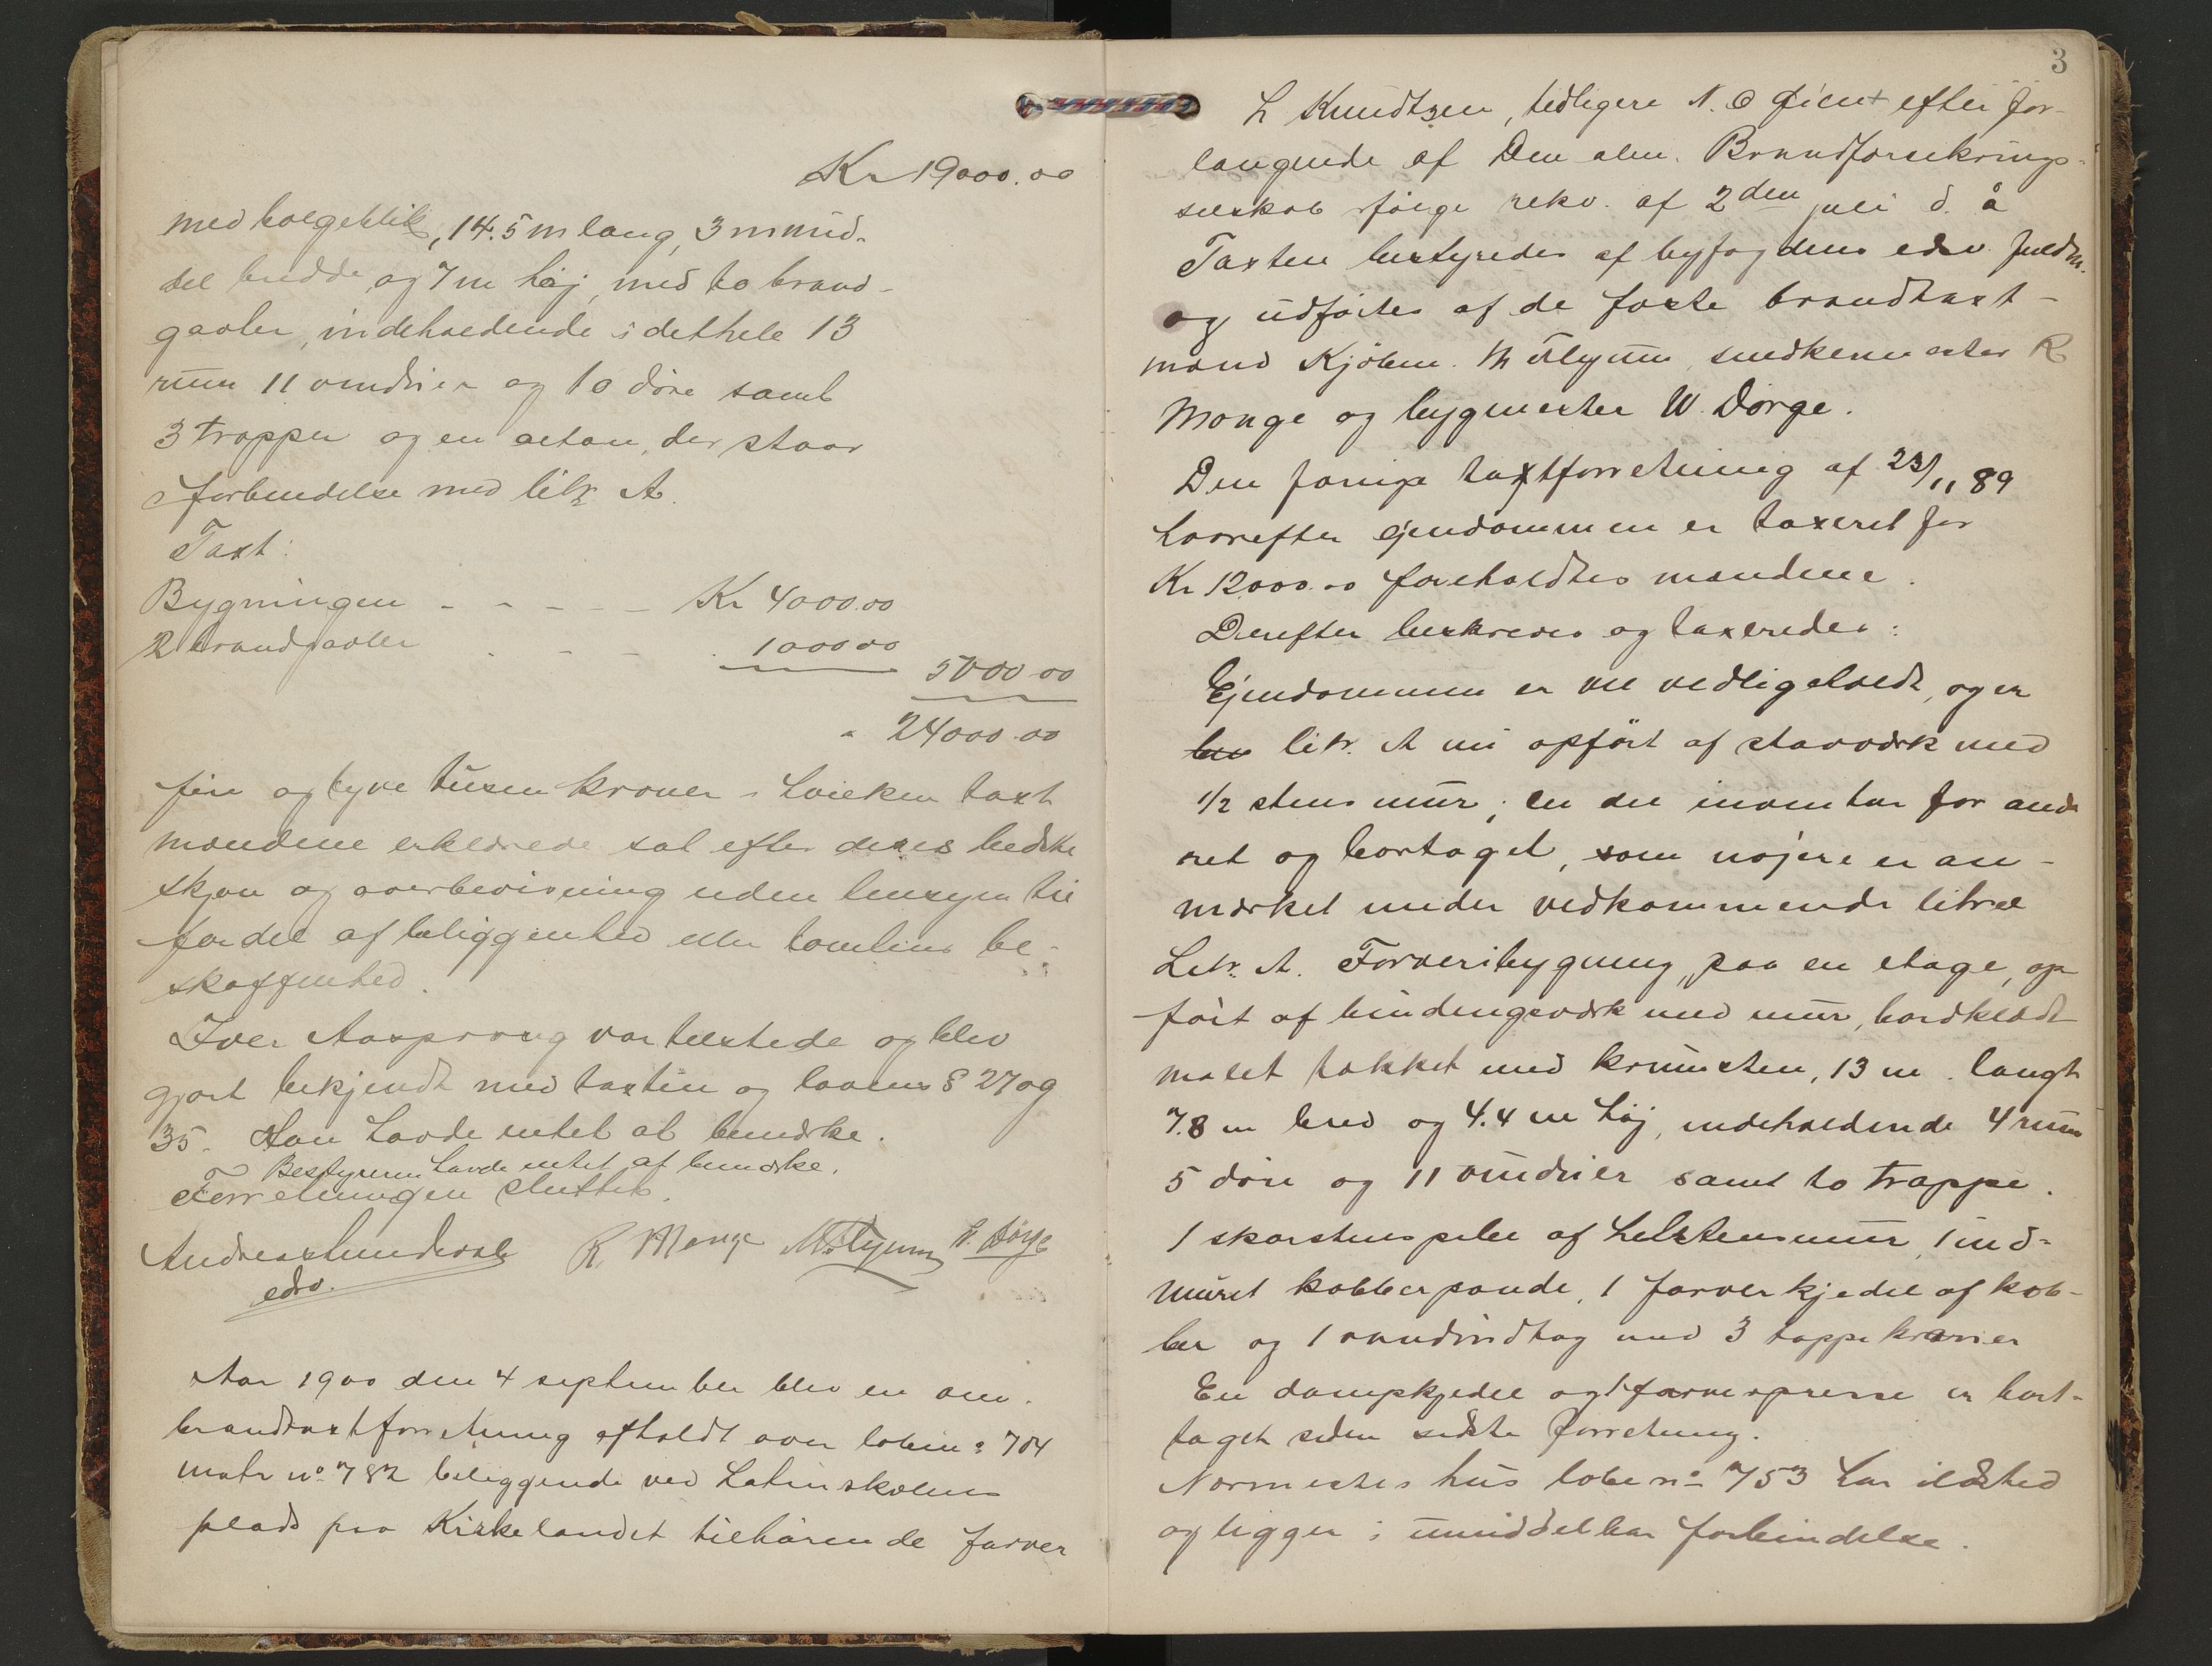 Kr 19000.00
med bølgeblik, 14.5 m lang, 3 m mid-
del bredde og 7 m høj, med to brand-
gavler, indeholdende i dethele 13
rum 11 vinduer og 10 døre samt
3 trapper og en altan, der staar
i forbindelse med litr A.
Taxt:
Bygningen - - - - - Kr 4000.00
2 brandgavler - - - 1000 00
5000.00
" 24000.00
fire og tyve tusen kroner - hvilken taxt
mændene erklærede sat efter deres bedste
skjøn og overbevisning uden hensyn til
fordel af beliggenhed eller tomtens be-
skaffenhed.
Iver Aasprong var tilstede og blev
gjort bekjendt med taxten og lovens § 27 og
35. Han havde intet at bemærke.
Bestyreren havde intet at bemærke.
Forretningen sluttet.
Andreas Lundevall R Monge M Olynn W. Dørge
edsv.
Aar 1900 den 4 september blev en om-
brandtaxtforretning afholdt over løben: 704
matr no 782 beliggende ved Latinskolens
plads paa Kirkelandet tilhørende farver
3
L Knudtzen, tidligere N. O Øien + efter for-
langende af Den alm. Brandforsikrings-
selskab ifølge rekv. af 2den juli d. å
Taxten bestyredes af byfogdens edsv. fuldm.
og udførtes af de faste brandtaxt-
mænd Kjøbm. M Olynn, snedkermester R
Monge og bygmester W. Dørge.
Den forrige taxtforretning af 23/11 89
hvorefter ejendommen er taxeret for
Kr 12000.00 foreholdtes mændene.
Derefter beskreves og taxeredes:
Ejendommen er vel vedligeholdt, og er
litr. A nu opført af stavværk med
1/2 stens mur; en del inventar foran-
ret og borttaget, som nøjere er an-
mærket under vedkommende litra
Litr. A. Farveribygning, paa en etage, op-
ført af bindingsværk med mur, bordklædt
malet takket med krumsten, 13 m. langt
7.8 m bred og 4.4 m høj, indeholdende 4 rum
5 døre og 11 vinduer samt to trapper.
1 skorstenspibe af helstensmur, 1 ind-
muret kobberpande, 1 farverkjedel af kob-
ber og 1 vandindtag med 3 tappekraner
En dampkjedel og 1 farverpresse er bort-
taget siden sidste forretning.
Nærmeste hus løbe no 753 har ildsted
og ligger i umiddelbar forbindelse.